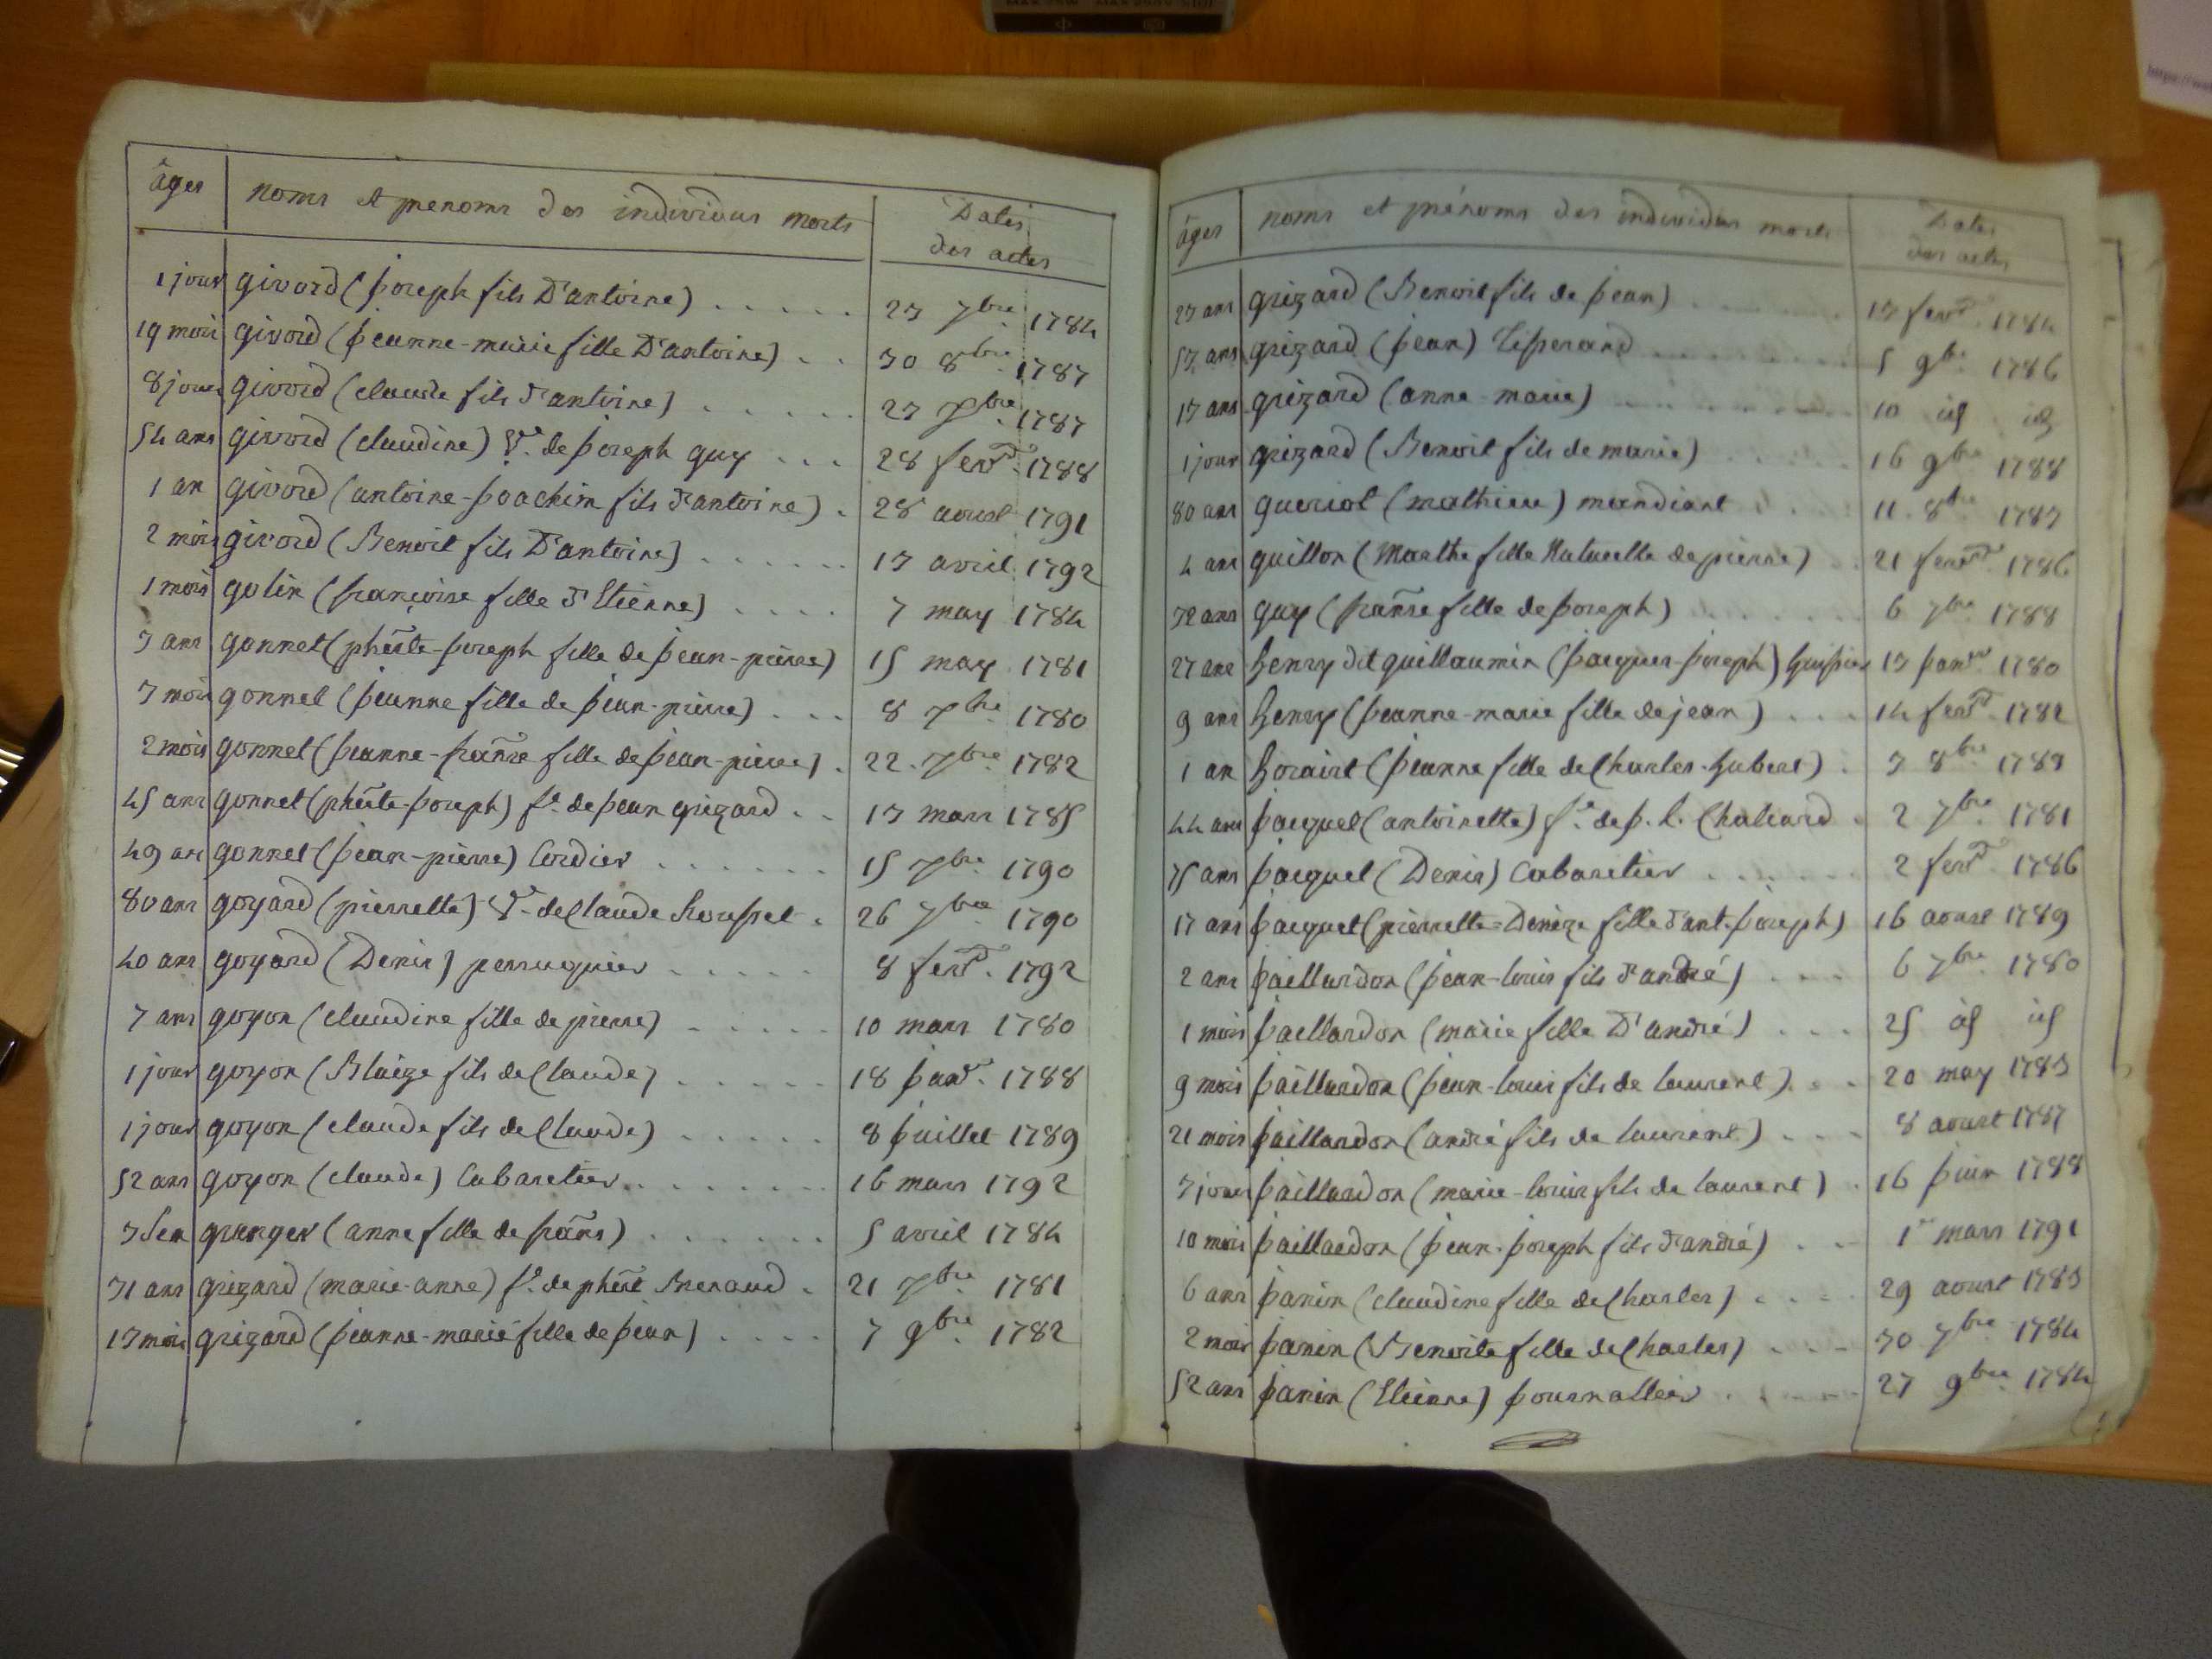 âges noms et prenoms des individus morts Dates des actes
1 jour givord (joseph fils D'antoine) 23 7bre 1784
19 mois givord (jeanne-marie fille D'antoine) 30 8bre 1787
8 jours givord (claude fils d'antoine) 23 7bre 1787
54 ans givord (claudine) Ve. de joseph guy 28 fevr. 1788
1 an givord (antoine-joachim fils d'antoine) 28 aoust 1791
2 mois givord (Benoit fils D'antoine) 13 avril 1792
1 mois golin (françoise fille d'Etienne) 7 may 1784
3 ans gonnet (phte-joseph fille de jean-pierre) 15 may 1781
3 mois gonnet (jeanne fille de jean-pierre) 8 7bre 1780
2 mois gonnet (jeanne-franse fille de jean-pierre) 22 7bre 1782
45 ans gonnet (phte-joseph) fe. de jean grizard 13 mars 1785
49 ans gonnet (jean-pierre) Cordier 15 7bre 1790
80 ans goyard (pierrette) Ve. de Claude 26 7bre 1790
40 ans goyard (Denis) perruquier 8 fevr. 1792
7 ans goyon (claudine fille de pierre) 10 mars 1780
1 jour goyon (Blaize fils de Claude) 18 janvr. 1788
1 jour goyon (claude fils de Claude) 8 juillet 1789
52 ans goyon (claude) Cabaretier 16 mars 1792
granger (anne fille de frans) 5 avril 1784
31 ans grizard (marie-anne) fe. de phert Menaud 21 7bre 1781
13 mois grizard (jeanne-marie fille de jean) 7 9bre 1782
âges noms et prénoms des individus morts Dates des actes
23 ans grizard (Benoit fils de jean) 13 fevr. 1784
53 ans grizard (jean) Tisserand 5 9bre 1786
13 ans grizard (anne-marie) 10 id id
1 jour grizard (Benoit fils de marie) 16 9bre 1788
80 ans gueriot (mathieu) mandiant 11 8bre 1783
4 ans guillon (Marthe fille Naturelle de pierre) 21 fevr. 1786
32 ans guy (franse fille de joseph) 6 7bre 1788
27 ans henry dit guillaumin (jacques-joseph) huissier 13 janvr 1780
9 ans henry (jeanne-marie fille de jean) 14 fevr. 1782
1 an horaist (jeanne fille de Charles-hubert) 3 8bre 1789
44 ans jacquet (antoinette) fe. de j. Chaliard 2 7bre 1781
75 ans jacquet (Denis) Cabaretier 2 fevr. 1786
17 ans jacquet (pierrette=Denize fille d'ant. joseph) 16 aoust 1789
2 ans jaillardon (jean-louis fils d'andré) 6 7bre 1780
1 mois jaillardon (marie fille D'andré) 25 id id
9 mois jaillardon (jean-louis fils de laurent) 20 may 1783
21 mois jaillardon (andré fils de laurent) 8 aoust 1787
3 jours jaillardon (marie-louis fils de laurent) 16 juin 1788
10 mois jaillardon (jean-joseph fils d'andré) 1er mars 1791
6 ans janin (claudine fille de Charles) 29 aoust 1783
2 mois janin (Benoite fille de Charles) 30 7bre 1784
52 ans janin (Etienne) journallier 27 9bre 1784